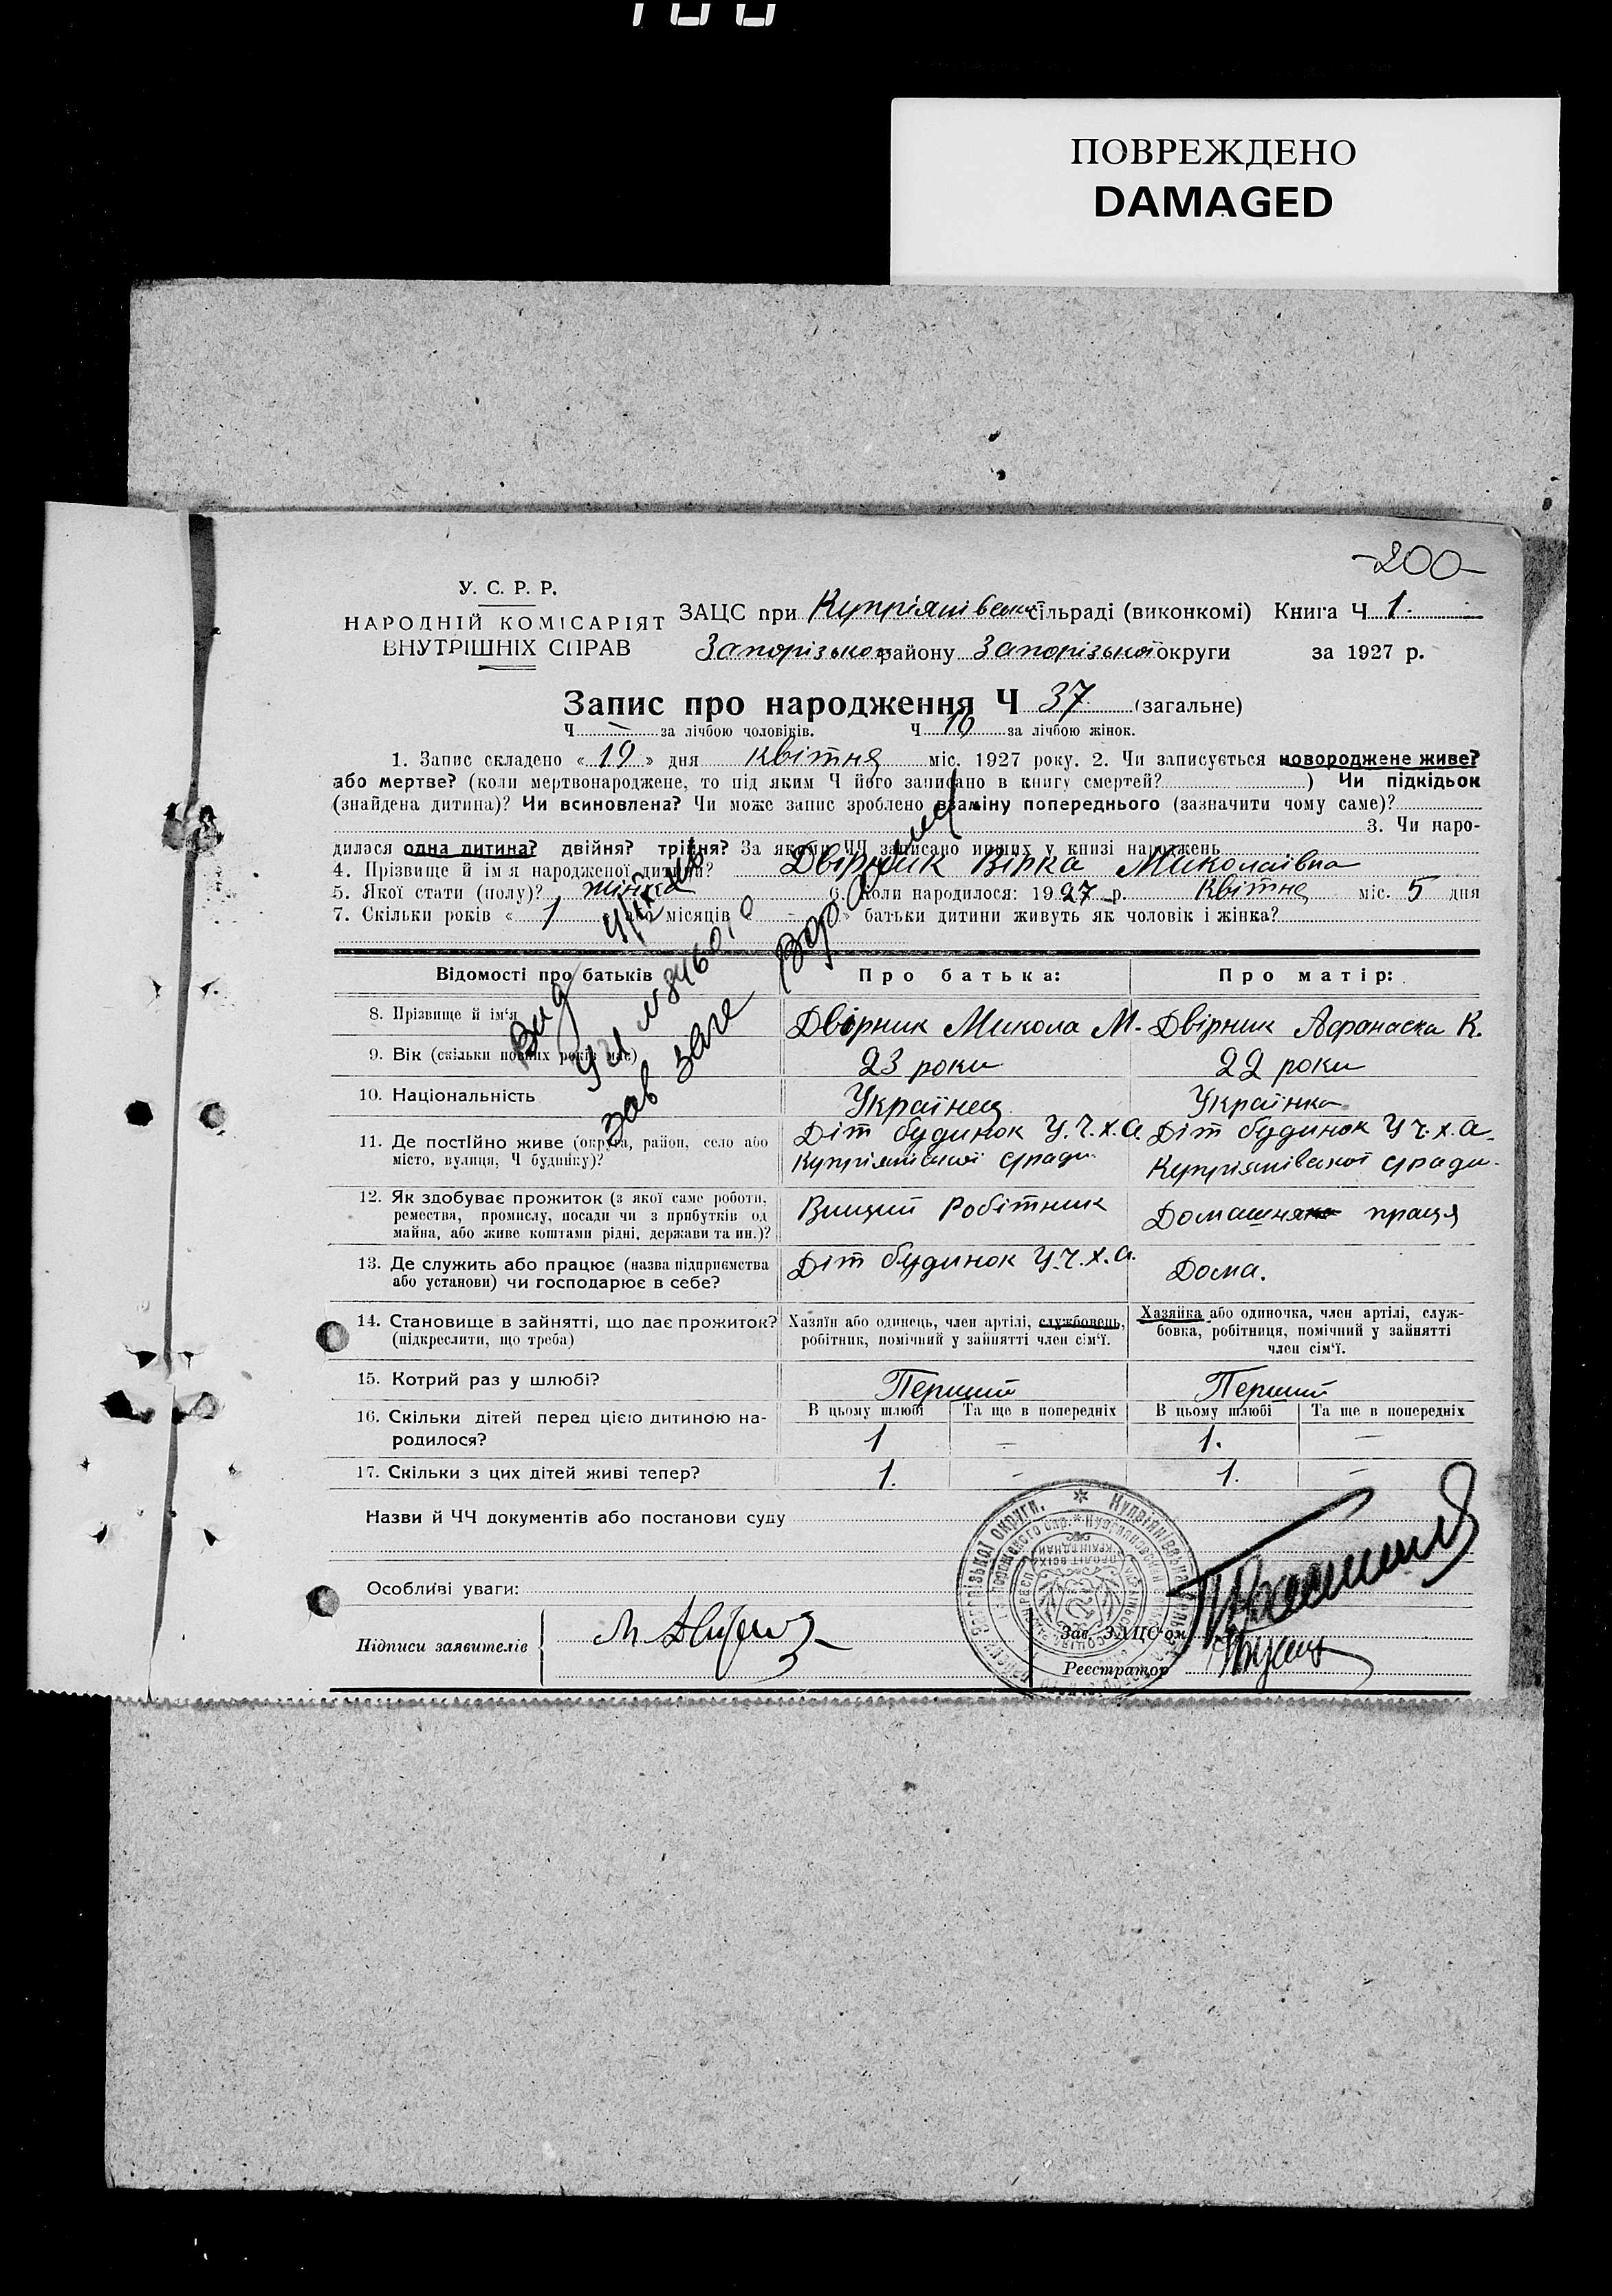 ПОВРЕЖДЕНО
DAMAGED
-200-
У. С. Р. Р.
НАРОДНІЙ КОМІСАРІЯТ
ВНУТРІШНІХ СПРАВ
ЗАЦС при Купріянівській сільраді (виконкомі) Книга Ч 1.
Запорізького району Запорізької округи за 1927 р.
Запис про народження Ч 37 (загальне)
Ч — за лічбою чоловіків. Ч 16 за лічбою жінок.
1. Запис складено « 19 » дня Квітня міс. 1927 року. 2. Чи записується новороджене живе?
або мертве? (коли мертвонароджене, то під яким Ч його записано в книгу смертей? ) Чи підкідьок
(знайдена дитина)? Чи всиновлена? Чи може запис зроблено взаміну попереднього (зазначити чому саме)?
3. Чи наро-
дилася одна дитина? двійня? трійня? За якими ЧЧ записано инших у книзі народжень
4. Прізвище й ім'я народженої дитини? Двірник Вірка Миколаївна
5. Якої стати (полу)? жінка 6. Коли народилося: 1927 р. Квітня міс. 5 дня
7. Скільки років « 1 або місяців » батьки дитини живуть як чоловік і жінка?
Відомості про батьків
Про батька:
Про матір:
8. Прізвище й ім'я
Двірник Микола М.
Двірник Афанаска К.
9. Вік (скільки повних років має)
23 роки
22 роки
10. Національність
Українец
Українка
11. Де постійно живе (округа, район, село або
місто, вулиця, Ч будинку)?
Діт будинок У.Ч.Х.А.
Купріянівської с/ради
Діт будинок У.Ч.Х.А.
Купріянівської с/ради.
12. Як здобуває прожиток (з якої саме роботи,
ремества, промислу, посади чи з прибутків од
майна, або живе коштами рідні, держави та ин.)?
Робітник
Домашня праця
13. Де служить або працює (назва підприємства
або установи) чи господарює в себе?
Діт будинок У.Ч.Х.А.
Дома.
14. Становище в зайнятті, що дає прожиток?
(підкреслити, що треба)
Хазяїн або одинець, член артілі, службовець,
робітник, помічний у зайнятті член сім'ї.
Хазяйка або одиночка, член артілі, служ-
бовка, робітниця, помічний у зайнятті
член сім'ї.
15. Котрий раз у шлюбі?
Перший
Перший
16. Скільки дітей перед цією дитиною на-
родилося?
В цьому шлюбі Та ще в попередніх
В цьому шлюбі Та ще в попередніх
1 —
1. —
17. Скільки з цих дітей живі тепер?
1. —
1. —
Назви й ЧЧ документів або постанови суду
Особливі уваги:
Підписи заявителів
Зав. ЗАЦС'ом
Реєстратор